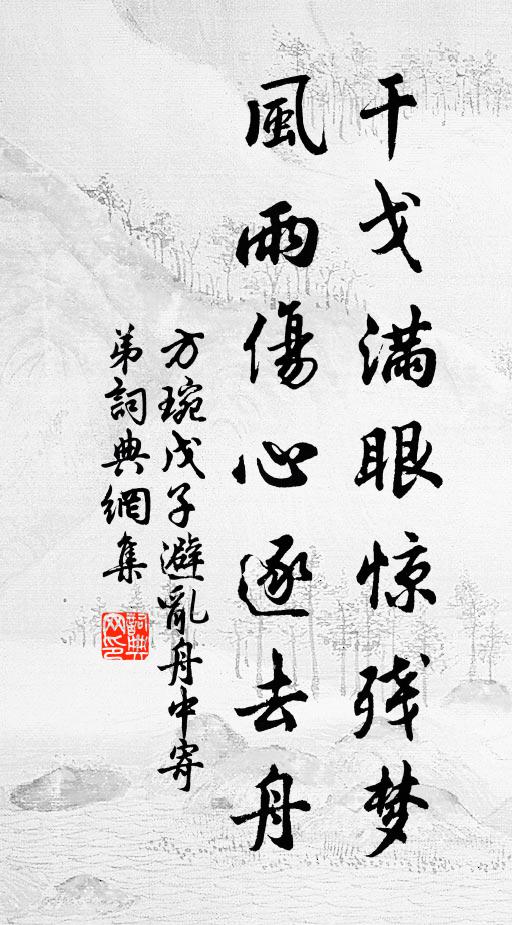 干戈满眼惊残梦
風雨傷心逐去舟
方琬戊子避亂舟中寄
弟詞典網集
詞典
网印